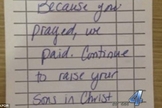 Because you
prayed, we
paid. Continue
to raise your
sons in Christ